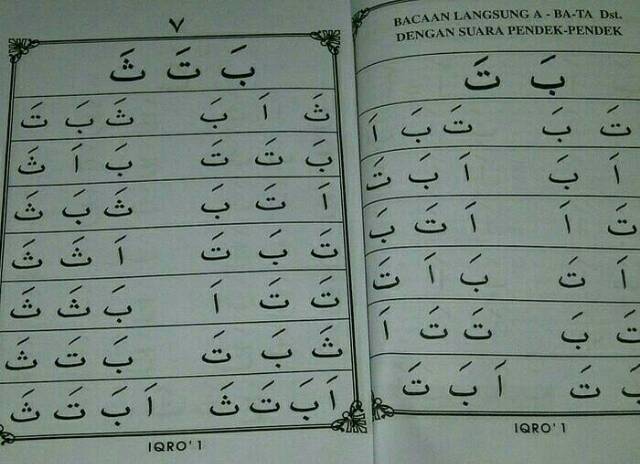 BACAAN LANGSUNG A - BA-TA Dst.
DENGAN SUARA PENDEK-PENDEK
بَ تَ
تَ بَ تَ بَ اَ
اَ بَ اَ بَ تَ
تَ اَ اَ تَ بَ
اَ تَ بَ اَ تَ
تَ بَ تَ تَ اَ
بَ تَ اَ بَ تَ
IQRO' 1
٧
بَ تَ ثَ
ثَ اَ بَ ثَ بَ تَ
بَ تَ تَ بَ اَ ثَ
اَ تَ بَ ثَ بَ ثَ
تَ بَ تَ اَ ثَ ثَ
تَ تَ اَ بَ ثَ ثَ
ثَ بَ تَ بَ تَ ثَ
اَ بَ تَ ثَ اَ بَ تَ ثَ
IQRO' 1